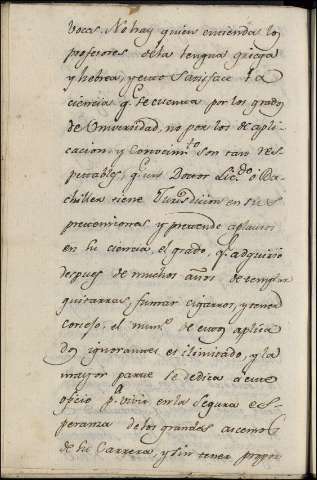 vocas. No hay quien encienda los
profesores de la lengua griega
y hebrea, y
ciencia q.e se cuenta por los grados
de Universidad, no por los de aplicacion
cacion, y Conocim.to son tan respetables
petables, q.e un Doctor Lic.do o Bachiller
chiller tiene Jurisdiccion en sus
prevenciones y pretende aplausos
en su ciencia, el grado, q.e adquirio
despues de muchos años de templar
guitarras, fumar cigarros, y tener
consejo, el num.o de estos aplicados
dos ignorantes es ilimitado, y la
mayor parte se dedica a este
oficio p.a vivir en la segura esperanza
peranza de los grandes ascensos
de su Carrera, y sin tener